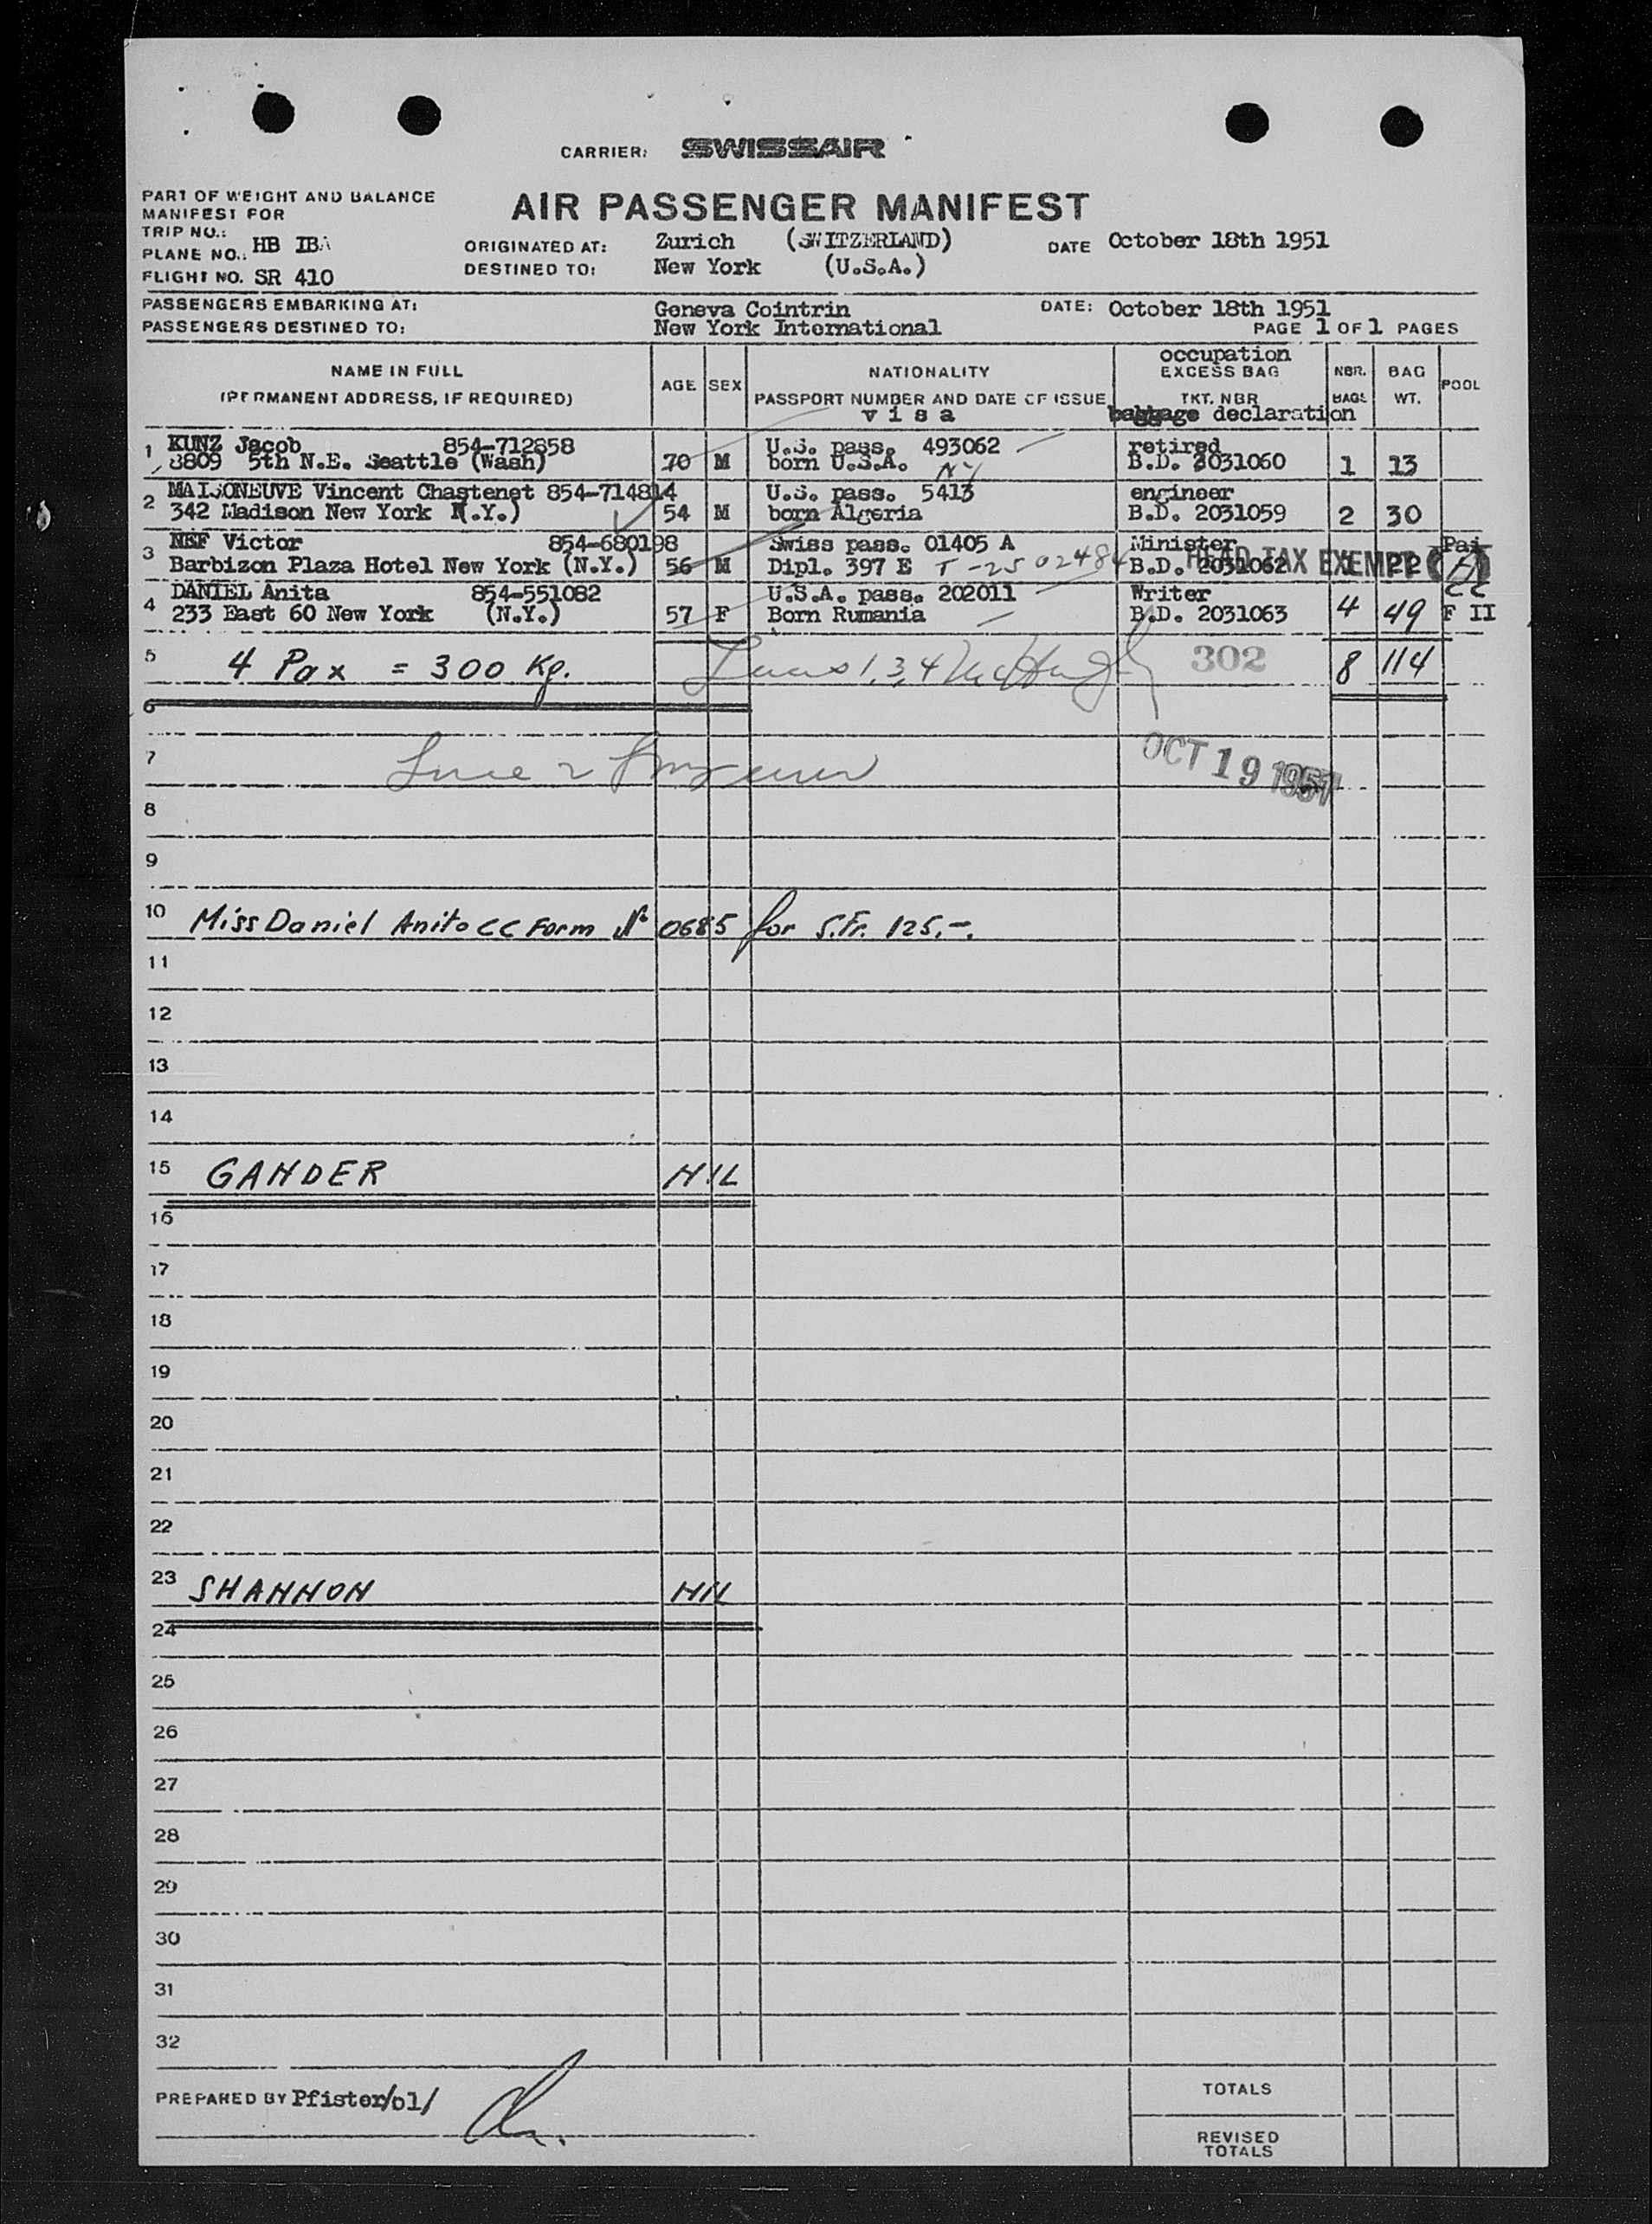 CARRIER: SWISSAIR
PART OF WEIGHT AND BALANCE
MANIFEST FOR
AIR PASSENGER MANIFEST
TRIP NO.:
PLANE NO.: HB IBA
ORIGINATED AT: Zurich (SWITZERLAND) DATE October 18th 1951
FLIGHT NO. SR 410
DESTINED TO: New York (U.S.A.)
PASSENGERS EMBARKING AT: Geneva Cointrin DATE: October 18th 1951
PASSENGERS DESTINED TO: New York International PAGE 1 OF 1 PAGES
NAME IN FULL AGE SEX NATIONALITY occupation EXCESS BAG NBR. BAG POOL
(PERMANENT ADDRESS, IF REQUIRED) PASSPORT NUMBER AND DATE OF ISSUE TKT. NBR BAGS WT.
visa baggage declaration
1 KUNZ Jacob 854-712858 U.S. pass. 493062 retired
8809 5th N.E. Seattle (Wash) 70 M born U.S.A. NY B.D. 2031060 1 13
2 MAISONEUVE Vincent Chastenet 854-714814 U.S. pass. 5413 engineer
342 Madison New York (N.Y.) 54 M born Algeria B.D. 2031059 2 30
3 NEF Victor 854-680198 Swiss pass. 01405 A Minister
Barbizon Plaza Hotel New York (N.Y.) 56 M Dipl. 397 E T-2502484 B.D. 2031062 HEAD TAX EXEMPT 22
4 DANIEL Anita 854-551082 U.S.A. pass. 202011 Writer CC
233 East 60 New York (N.Y.) 57 F Born Rumania B.D. 2031063 4 49 F II
5 4 Pax = 300 Kg. 1,3,4 302 8 114
6
7 OCT 19 1951
8
9
10 Miss Daniel Anita CC Form No 0685 for S.Fr. 125.-.
11
12
13
14
15 GANDER NIL
16
17
18
19
20
21
22
23 SHANNON NIL
24
25
26
27
28
29
30
31
32
PREPARED BY Pfister/ol/
TOTALS
REVISED
TOTALS